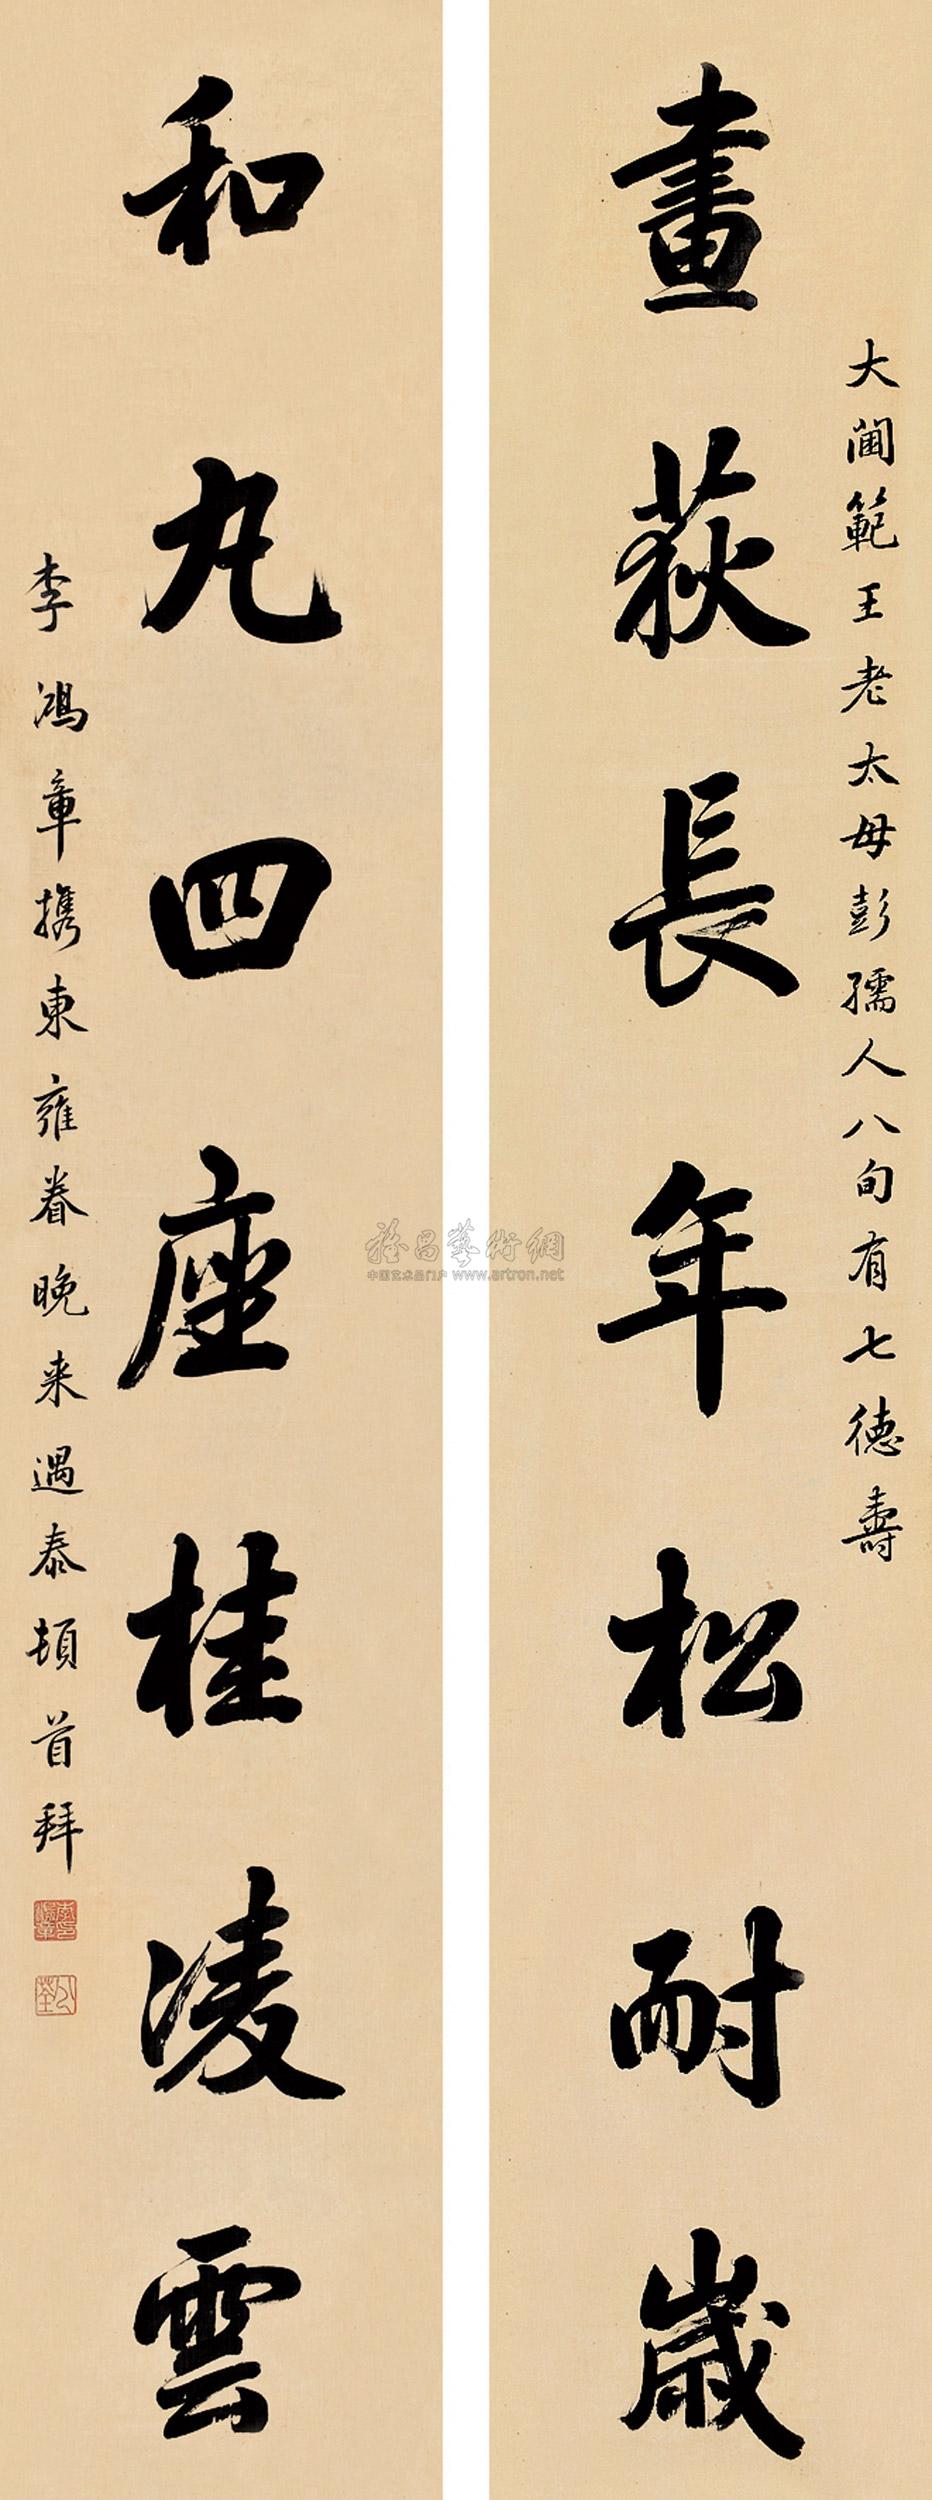 大閫範王老太母彭孺人八旬有七德壽
畫荻長年松耐歲
和丸四座桂凌雲
李鴻章攜東雍眷晚来遇泰頓首拜
雅昌藝術網
中国艺术品门户 www.artron.net